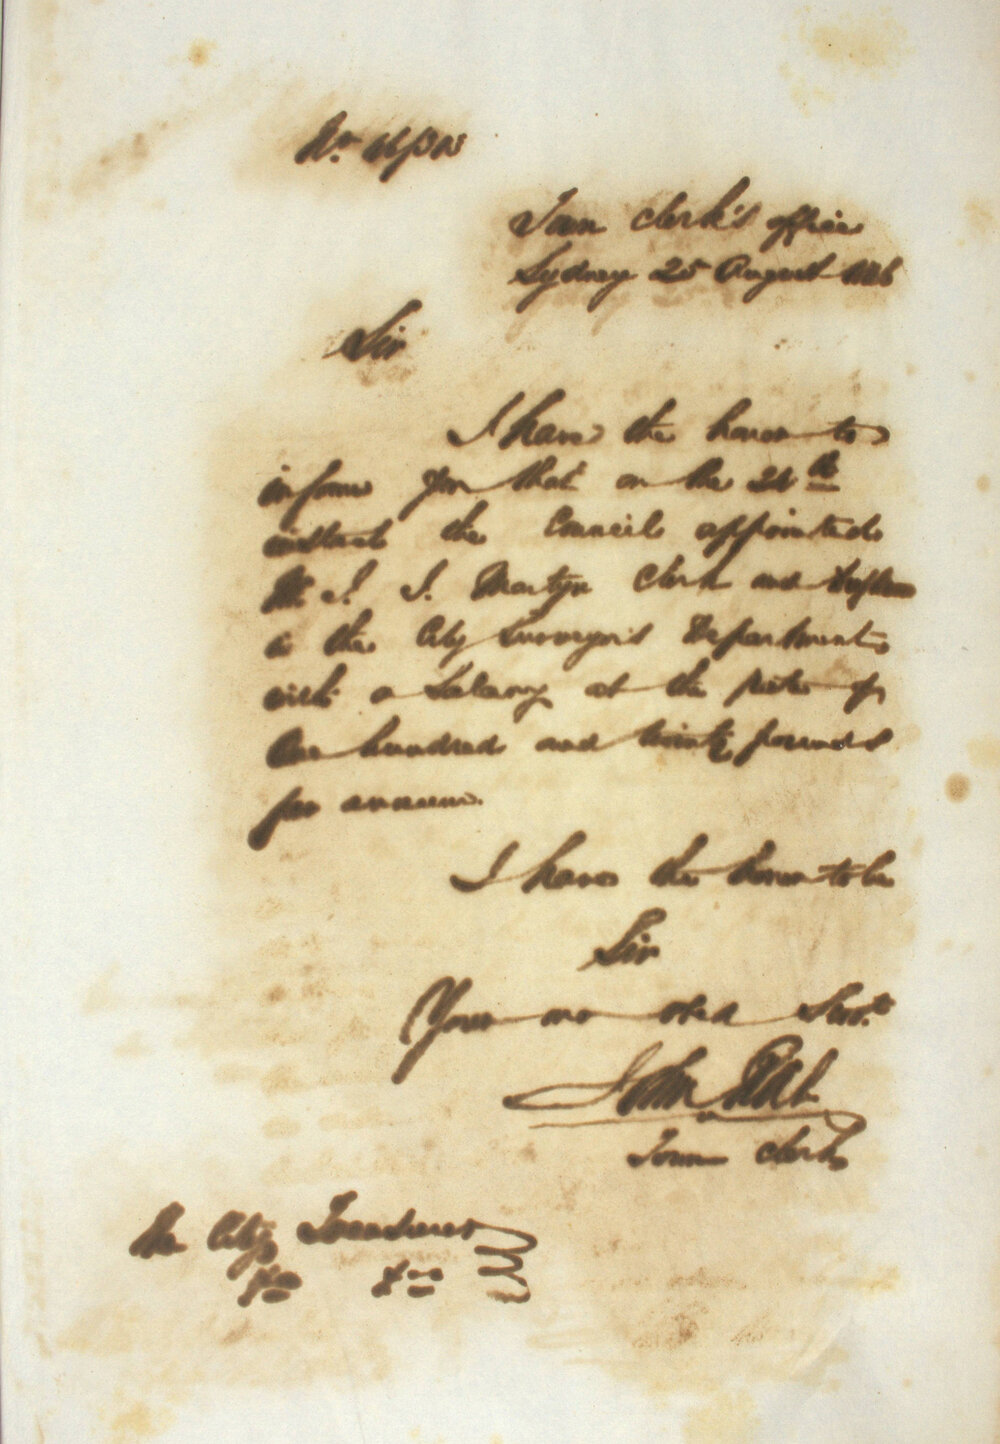 Town Clerk's Office
Sydney 25 August
Sir
I have the honor to
inform you that on the 24th
instant the Council appointed
Mr J. J. Martyn Clerk and
in the City Surveyor's Department
with a Salary at the rate of
One hundred and twenty pounds
per annum.
I have the honor to be
Sir
Your mo obed Servt
John
Town Clerk
The City Treasurer
&c &c